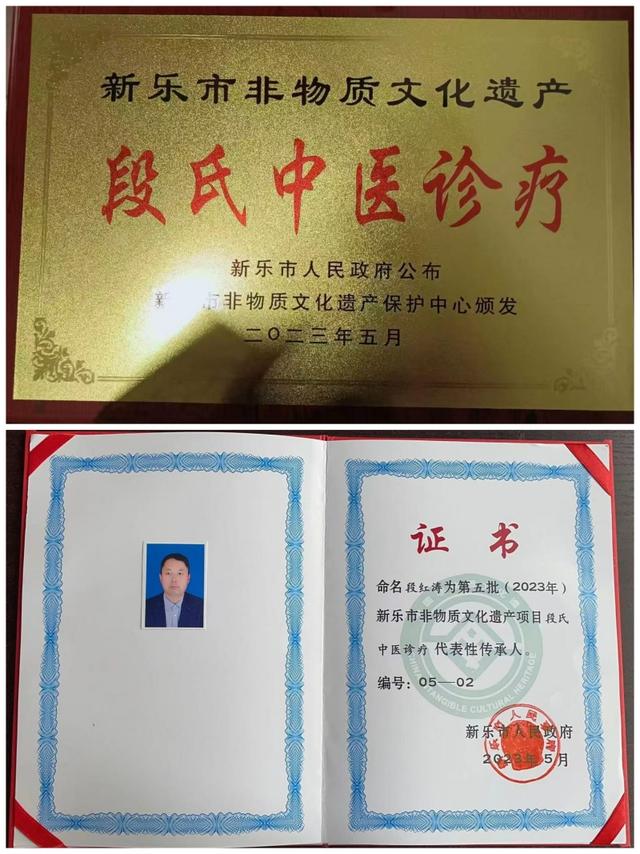 新乐市非物质文化遗产
段氏中医诊疗
新乐市人民政府公布
新 市非物质文化遗产保护中心颁发
二〇二三年五月
证书
命名段红涛为第五批(2023年)
新乐市非物质文化遗产项目段氏
中医诊疗 代表性传承人。
编号:05—02
新乐市人民政府
2023年5月
INTANGIBLE CULTURAL HERITAGE
新乐市人民政府